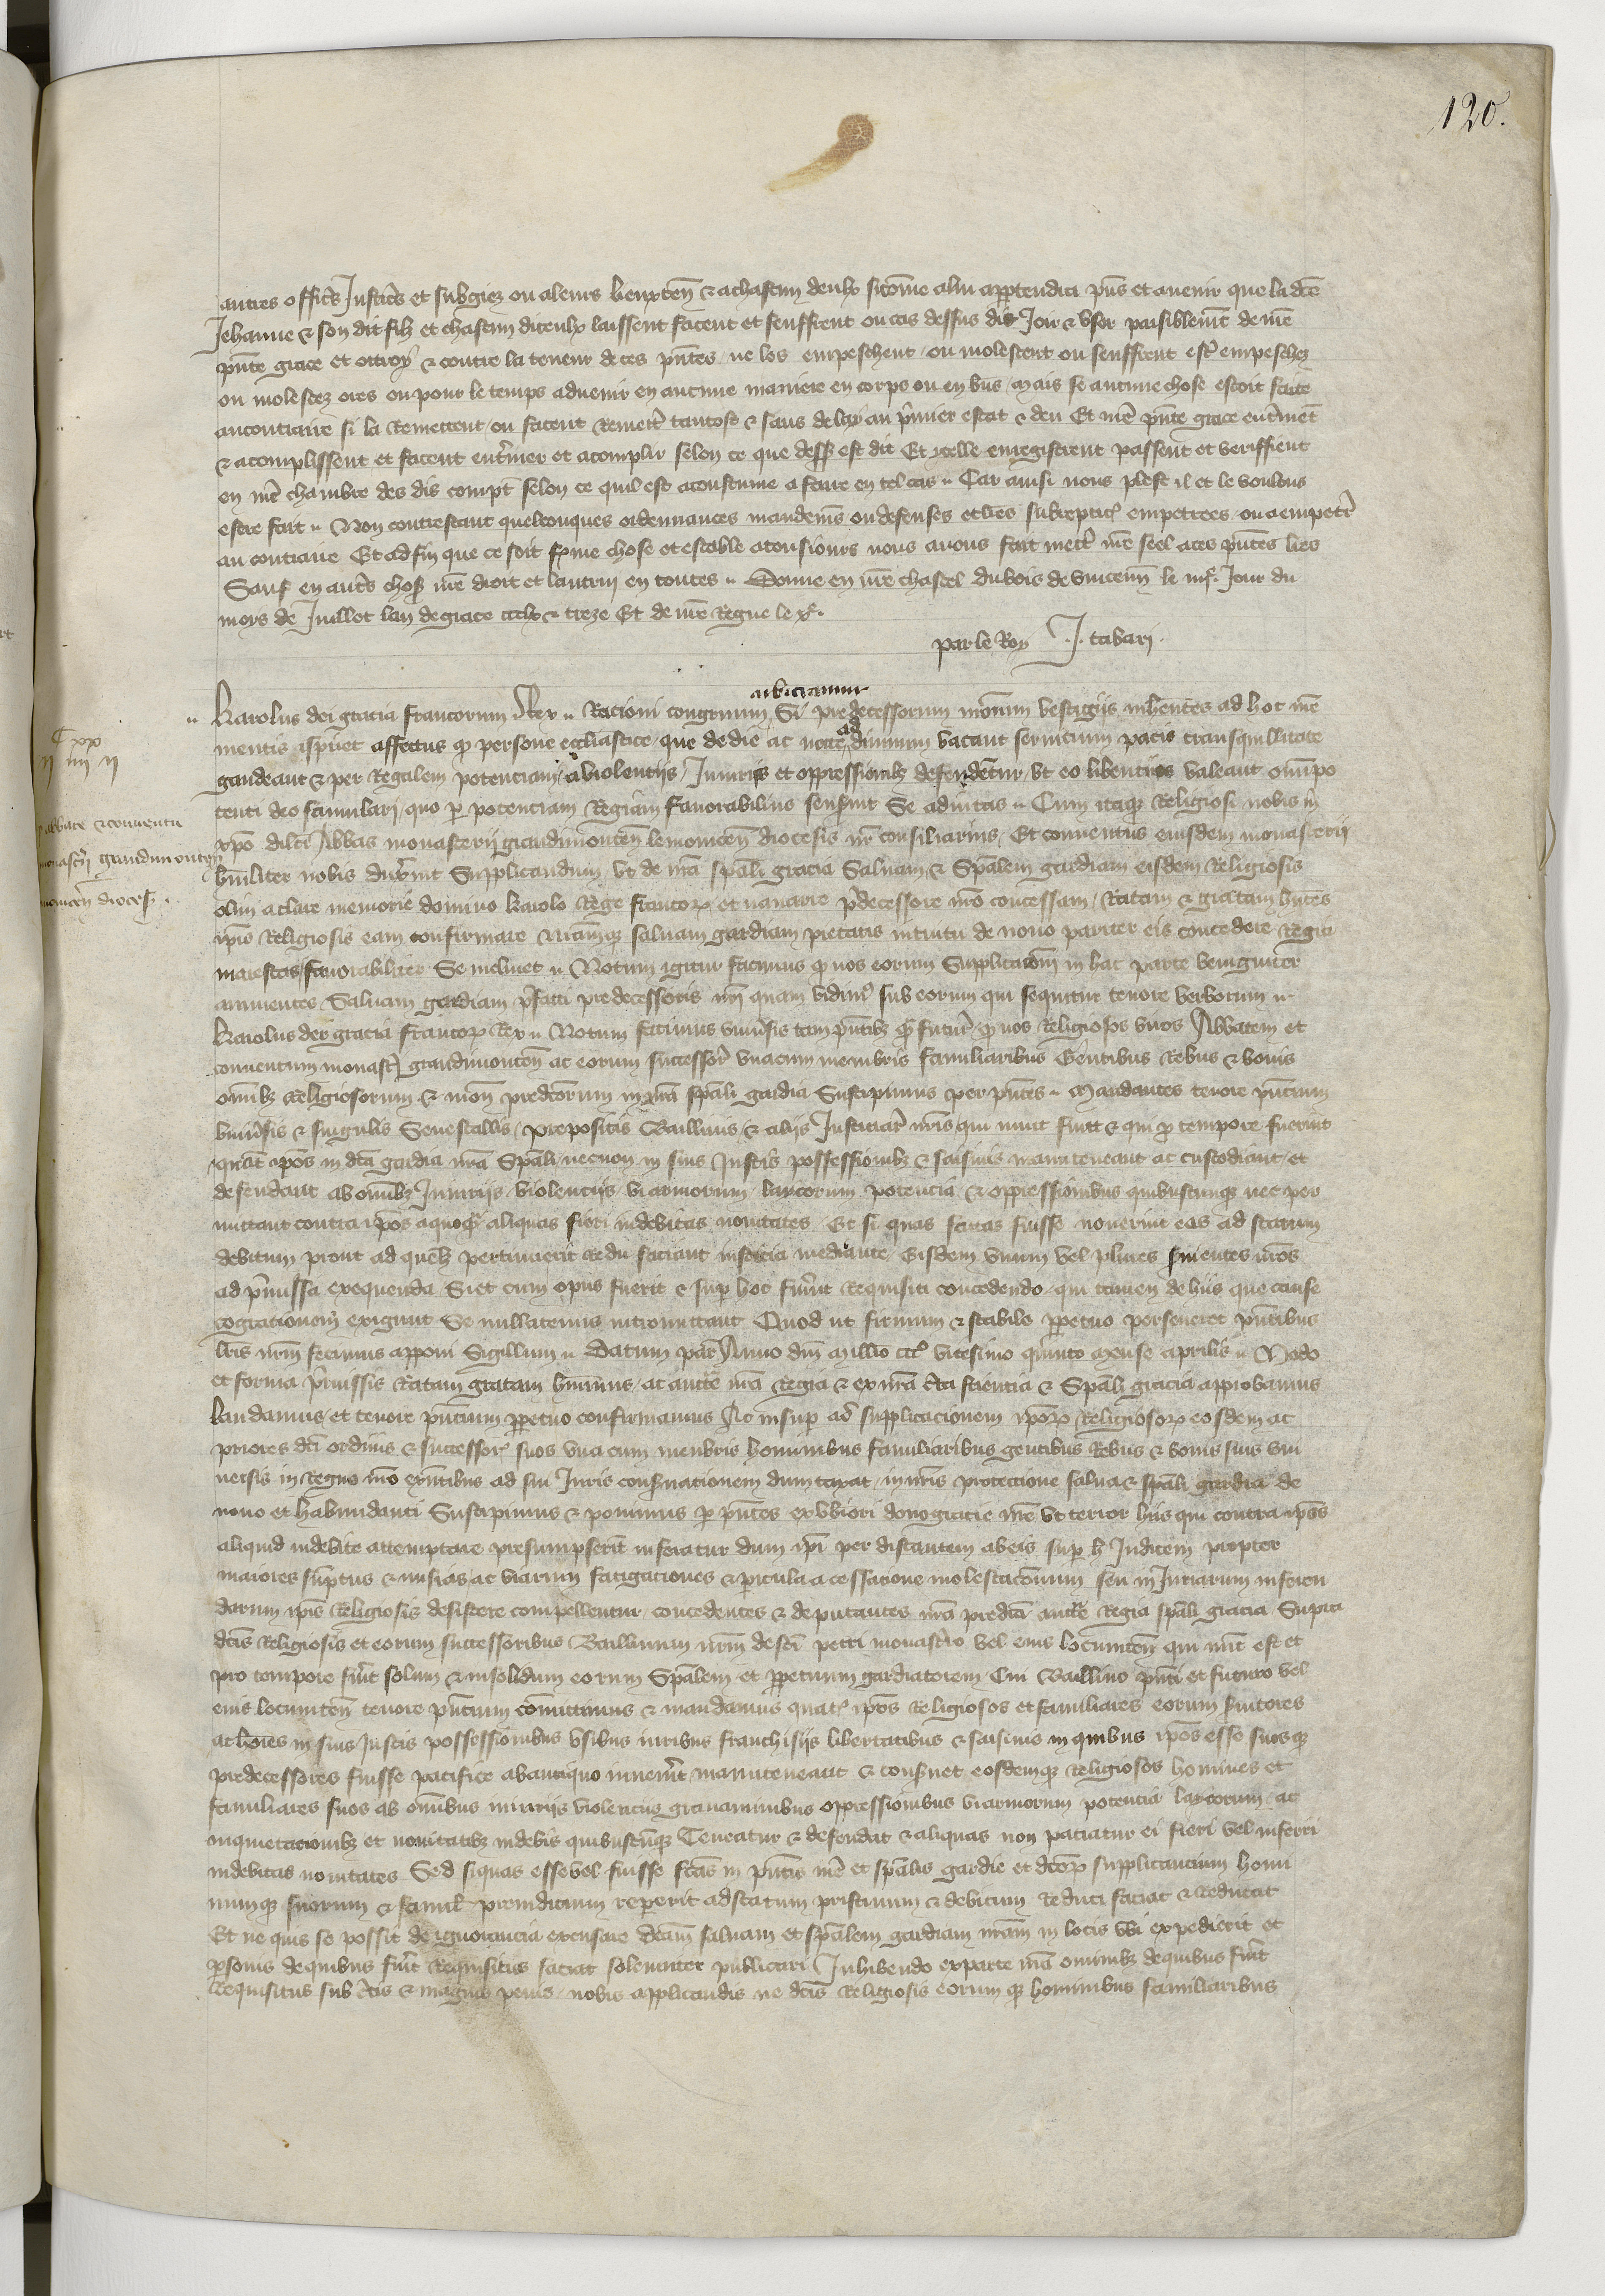 120.
autres officiers Justiciers et subgiez ou aleurs lieuxten & achascun deulx sicome alui appartendra pns et avenir que la dce
Jehanne & son dit filz et chascun diceulx laissent facent et seuffrent ou cas dessus dit Joir & user paisiblemt de nre
pnte grace et ottroy & contre la teneur de ces pntes ne les empeschent ou molestent ou seuffrent estre empeschez
ou molestez ores ou pour le temps advenir en aucune maniere en corps ou en biens Mais se aucune chose estoit faite
aucontraire si la Remettent ou facent Remettre tantost & sans delay au premier estat & deu Et nre pnte grace enterinet
& acomplissent et facent enteriner et acomplir selon ce que dessus est dit Et ycelle enregistrent passent et veriffient
en nre chambre des dis compt selon ce quil est acoustume afaire en tel cas Car ainsi nous plest il et le voulons
estre fait Non contrestant quelconques ordennances mandemens ou defenses et lres subreptices empetrees ou aempetrer
au contraire Et ad fin que ce soit ferme chose et estable atousiours nous avons fait mettre nre seel aces pntes lres
Sauf en autres choses nre droit et lautruy en toutes Donne en nre chastel du bois de vincennes le iiij. Jour du
moys de Juillet lan de grace ccclx & treze Et de nre Regne le xe.
par le Roy J. tabari.
Karolus dei gracia francorum Rex Racioni congruum arbitramur Si predecessorum nostrorum vestigiis inherentes ad hoc nre
mentis aspiret affectus qd persone ecclesiastice que de die ac nocte ad divinum vacant servicium pacis transquillitate
gaudeant & per Regalem potenciam a violentiis Iniuriis et oppressionibz defendentur ut eo libentius valeant omnipo
tenti deo famulari quo per potenciam Regiam favorabilius senserint se adiutas Cum itaque Religiosi nobis in
xpo dilcti Abbas monasterij grandimonten lemonicen diocesis nr consiliarius Et conventus eiusdem monasterij
humiliter nobis duxerint supplicandum ut de nra spali gracia Salvam & Spalem gardiam eisdem Religiosis
olim aclare memorie domino karolo Rege francorum et navarre predecessore nro concessam Ratam & gratam hntes
ipsis Religiosis eam confirmare nramque salvam gardiam pietatis intuitu de novo pariter eis concedere Regia
maiestas favorabiliter Se inclinet Notum igitur facimus qd nos eorum Supplicacioni in hac parte benigniter
annuentes Salvam gardiam prefati predecessoris nri quam vidimus sub eorum qui sequitur tenore verborum
Karolus dei gracia francorum Rex Notum facimus universis tam pntibz quam futuris qd nos Religiosos viros Abbatem et
conventum monasterij grandimonten ac eorum successores unacum membris familiaribus Gentibus Rebus & bonis
omnibz Religiosorum & mon predictorum in nra spali gardia Suscipimus per pntes Mandantes tenore pntium
universis & singulis Senescallis prepositis Baillivis & aliis Justiciariis nris qui nunc sunt & qui pro tempore fuerint
quatenus ipsos in dicta gardia nra Spali necnon in suis Iustis possessionibz & saisinis manuteneant ac custodiant et
defendant ab omnibz Iniuriis violentiis vi armorum laycorum potencia & oppressionibus quibuscunque nec per
mittant contra ipsos aquoquam aliquas fieri indebitas novitates Et si quas factas fuisse noverint eas ad statum
debitum prout ad quemlibet pertinuerit reduci faciant iusticia mediante Eisdem unum vel plures servientes nros
ad premissa exequenda Si et cum opus fuerit & super hoc fuerint Requisiti concedendo qui tamen de hiis que cause
cognicionem exigunt Se nullatenus intromittant Quod ut firmum & stabile perpetuo perseveret pntibus
lris nrm fecimus apponi Sigillum Datum par Anno dni Millio ccc vicesimo quinto mense aprilis Modo
et forma premissis Ratam gratam habemus ac auctoritate nra Regia & ex nra certa scientia & Spali gracia approbamus
laudamus et tenore pntium perpetuo confirmamus Ac insuper ad supplicacionem ipsorum Religiosorum eosdem ac
priores dicti ordinis & successores suos una cum membris hominibus familiaribus gentibus Rebus & bonis suis uni
versis in Regno nro existentibus ad sui Iuris conservacionem dumtaxat in nris protectione salva & spali gardia de
novo et habundanti Suscipimus & ponimus per pntes ex uberiori dono gracie nre ut terror hiis qui contra ipsos
aliquid indebite attemptare presumpserint inferatur dum ipsi per distantem abeis super hoc Iudicem propter
maiores sumptus & misias ac viarum fatigaciones & pericula a cessacione molestacionum seu Iniuriarum inferen
darum ipsis Religiosis desistere compellentur concedentes & deputantes nra predicta auctoritate Regia spali gracia Supra
dictis Religiosis et eorum successoribus Baillivum nrm de sancti petri monasterio vel eius locumten qui nunc est et
pro tempore fuerit solum & insolidum eorum Spalem et perpetuum gardiatorem Cui Baillivo pnti et futuro vel
eius locumten tenore pntium comittimus & mandamus quatenus ipsos Religiosos et familiares eorum servitores
ac homines in suis Iustis possessionibus usibus iuribus franchisiis libertatibus & saisinis in quibus ipsos esse suosque
predecessores fuisse pacifice ab antiquo invenerit manuteneant & conservet eosdemque Religiosos homines et
familiares suos ab omnibus iniuriis violenciis gravaminibus oppressionibus vi armorum potencia laycorum ac
inquietacionibz et novitatibz indebitis quibuscunque Tueatur & defendat & aliquas non paciatur ei fieri vel inferri
indebitas novitates Sed si quas esse vel fuisse factas in pntis nre et spalis gardie et dictorum supplicancium homi
numque suorum & famil preiudicium repererit ad statum pristinum & debitum reduci faciat & reducat
Et ne quis se possit de ignorancia excusare dictam salvam et spalem gardiam nram in locis ubi expedierit et
personis de quibus fuerit Requisitus faciat solemniter publicari Inhibendo ex parte nra omnibz de quibus fuerit
Requisitus sub certis & magnis penis nobis applicandis ne dictis Religiosis eorum qz hominibus familiaribus
abbate & conventu
monasterij grandimonten
lemovicen dioces